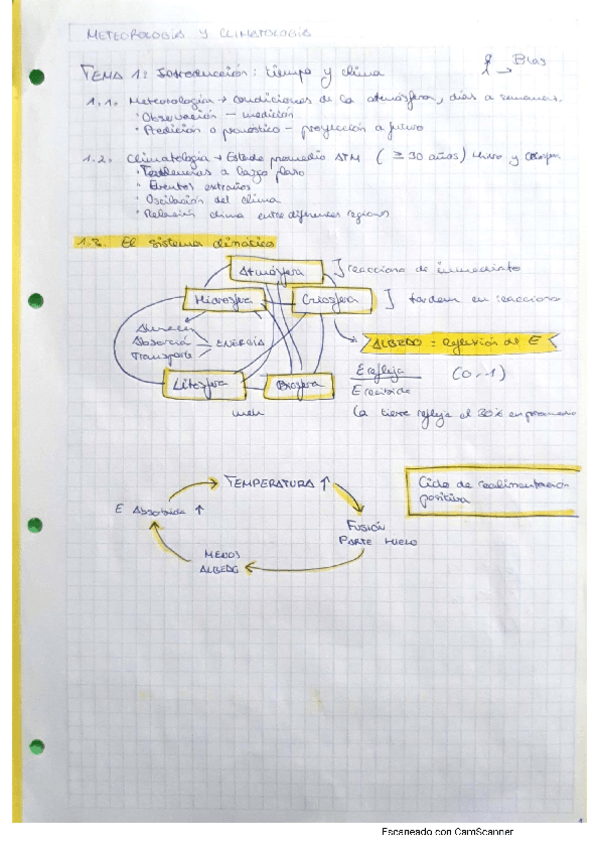 METEOROLOGÍA Y CLIMATOLOGÍA
Blas
TEMA 1: Introducción: tiempo y clima
1.1. Meteorología → condiciones de la atmósfera, días a semanas.
· Observación — medición
· Predición o pronóstico — proyección a futuro
1.2. Climatología → Estado promedio ATM ( ≥ 30 años)
· Tendencias a largo plazo
· Eventos extraños
· Oscilación del clima
· Relación clima entre diferentes regiones
1.3. El sistema climático
Atmósfera ] reacciona de inmediato
Hidrosfera Criosfera ] tardan en reaccionar
Absorción
Transporte
ENERGÍA
ALBEDO = Reflexión de E
Litosfera Biosfera
E refleja (0-1)
E recibida
La tierra refleja el 30% en promedio
TEMPERATURA ↑
Ciclo de realimentación
positiva
E Absorbida ↑
FUSIÓN
PARTE HIELO
MENOS
ALBEDO
1
Escaneado con CamScanner